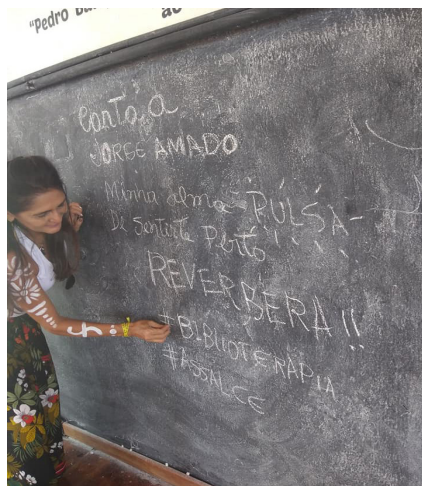 "Pedro
Conto, a
JORGE AMADO
Minha alma PULSA-
De Sentirte Perto
REVERBERA!!
#BIBLIOTERAPIA
#ASSALCE